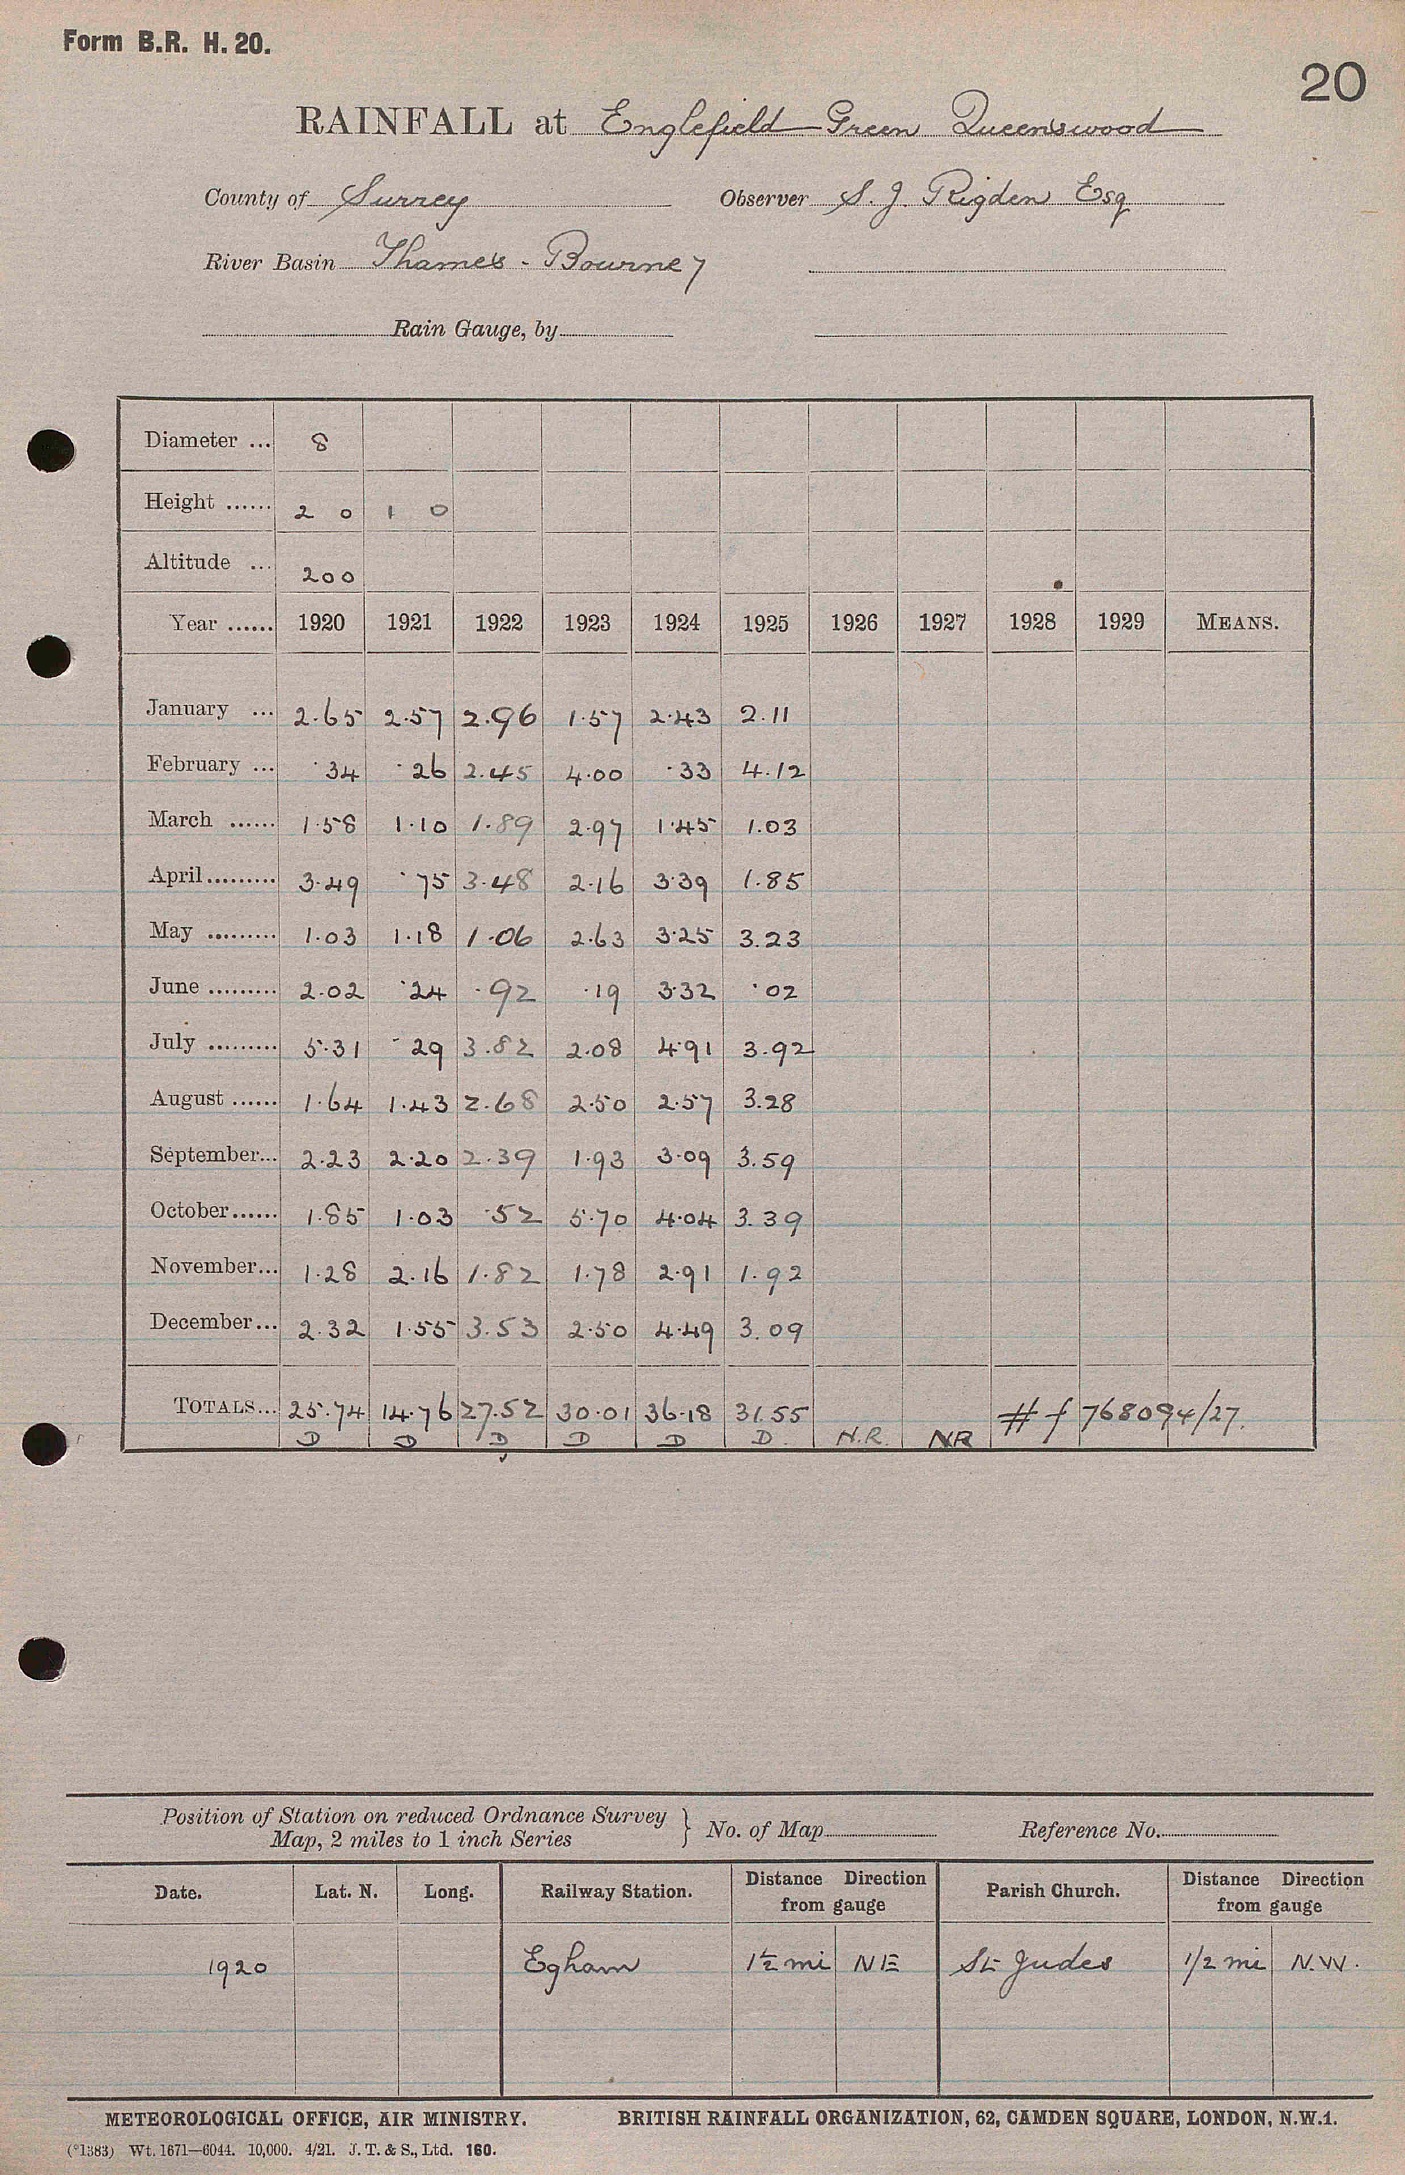 Form B.R. H. 20.
20
RAINFALL at Englefield Green Queenswood
County of Surrey Observer S. J. Rigden Esq
River Basin Thames - Bourne 7
Rain Gauge, by
Diameter ... 8
Height ...... 2 0 1 0
Altitude ... 200
Year ...... 1920 1921 1922 1923 1924 1925 1926 1927 1928 1929 MEANS.
January ... 2.65 2.57 2.96 1.57 2.43 2.11
February ... .34 .26 2.45 4.00 .33 4.12
March ...... 1.58 1.10 1.89 2.97 1.45 1.03
April......... 3.49 .75 3.48 2.16 3.39 1.85
May ......... 1.03 1.18 1.06 2.63 3.25 3.23
June ......... 2.02 .24 .92 .19 3.32 .02
July ......... 5.31 .29 3.82 2.08 4.91 3.92
August ...... 1.64 1.43 2.68 2.50 2.57 3.28
September... 2.23 2.20 2.39 1.93 3.09 3.59
October...... 1.85 1.03 .52 5.70 4.04 3.39
November... 1.28 2.16 1.82 1.78 2.91 1.92
December... 2.32 1.55 3.53 2.50 4.49 3.09
TOTALS... 25.74 14.76 27.52 30.01 36.18 31.55 # f 768094/27.
D D D D D D. N.R. NR
Position of Station on reduced Ordnance Survey
Map, 2 miles to 1 inch Series } No. of Map Reference No.
Date. Lat. N. Long. Railway Station. Distance Direction from gauge Parish Church. Distance Direction from gauge
1920 Egham 1½ mi NE St Judes 1/2 mi N.W.
METEOROLOGICAL OFFICE, AIR MINISTRY. BRITISH RAINFALL ORGANIZATION, 62, CAMDEN SQUARE, LONDON, N.W.1.
(*1383) Wt. 1671—6044. 10,000. 4/21. J. T. & S., Ltd. 160.